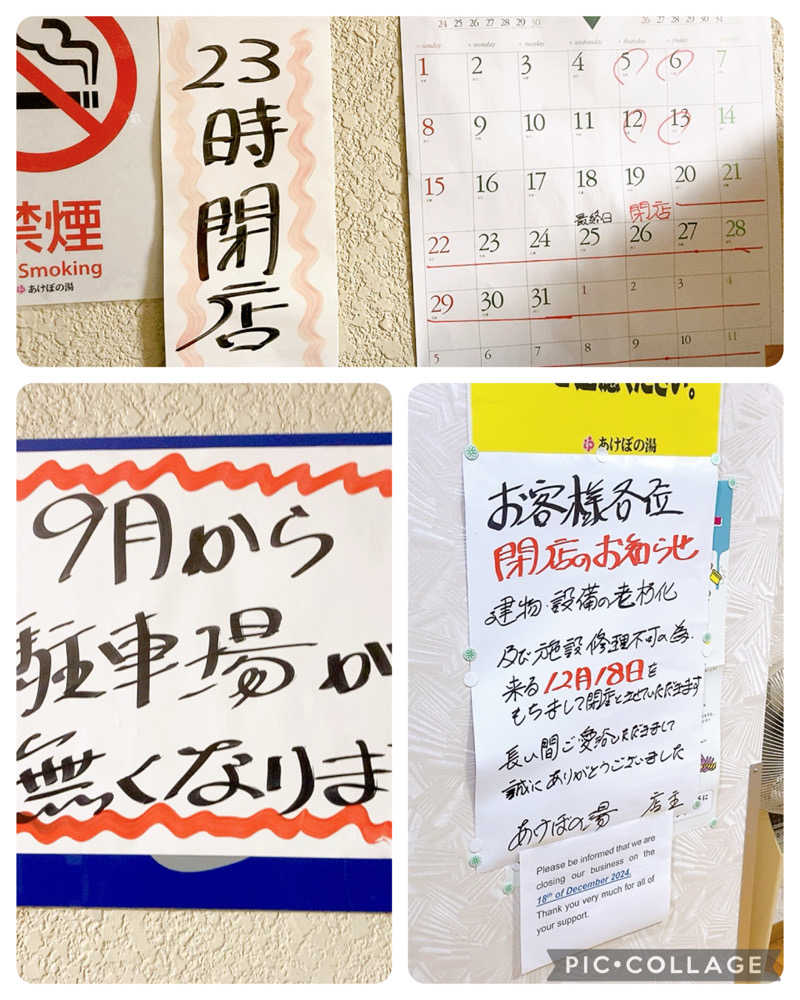 禁煙
Smoking
あけぼの湯
23
時
閉
店
24 25 26 27 28 29 30
26 27 28 29 30 31
sunday monday tuesday wednesday thursday friday
1 2 3 4 5 6 7
8 9 10 11 12 13 14
15 16 17 18 19 20 21
最終日 閉店
22 23 24 25 26 27 28
29 30 31 1 2 3 4
5 6 7 8 9 10 11
9月から
駐車場が
無くなりま
ください。
あけぼの湯
お客様各位
閉店のお知らせ
建物・設備の老朽化
及び施設修理不可の為、
来る12月18日を
もちまして閉店とさせていただきます
長い間ご愛顧いただきまして
誠にありがとうございました
あけぼの湯 店主
Please be informed that we are
closing our business on the
18th of December 2024.
Thank you very much for all of
your support.
PIC•COLLAGE